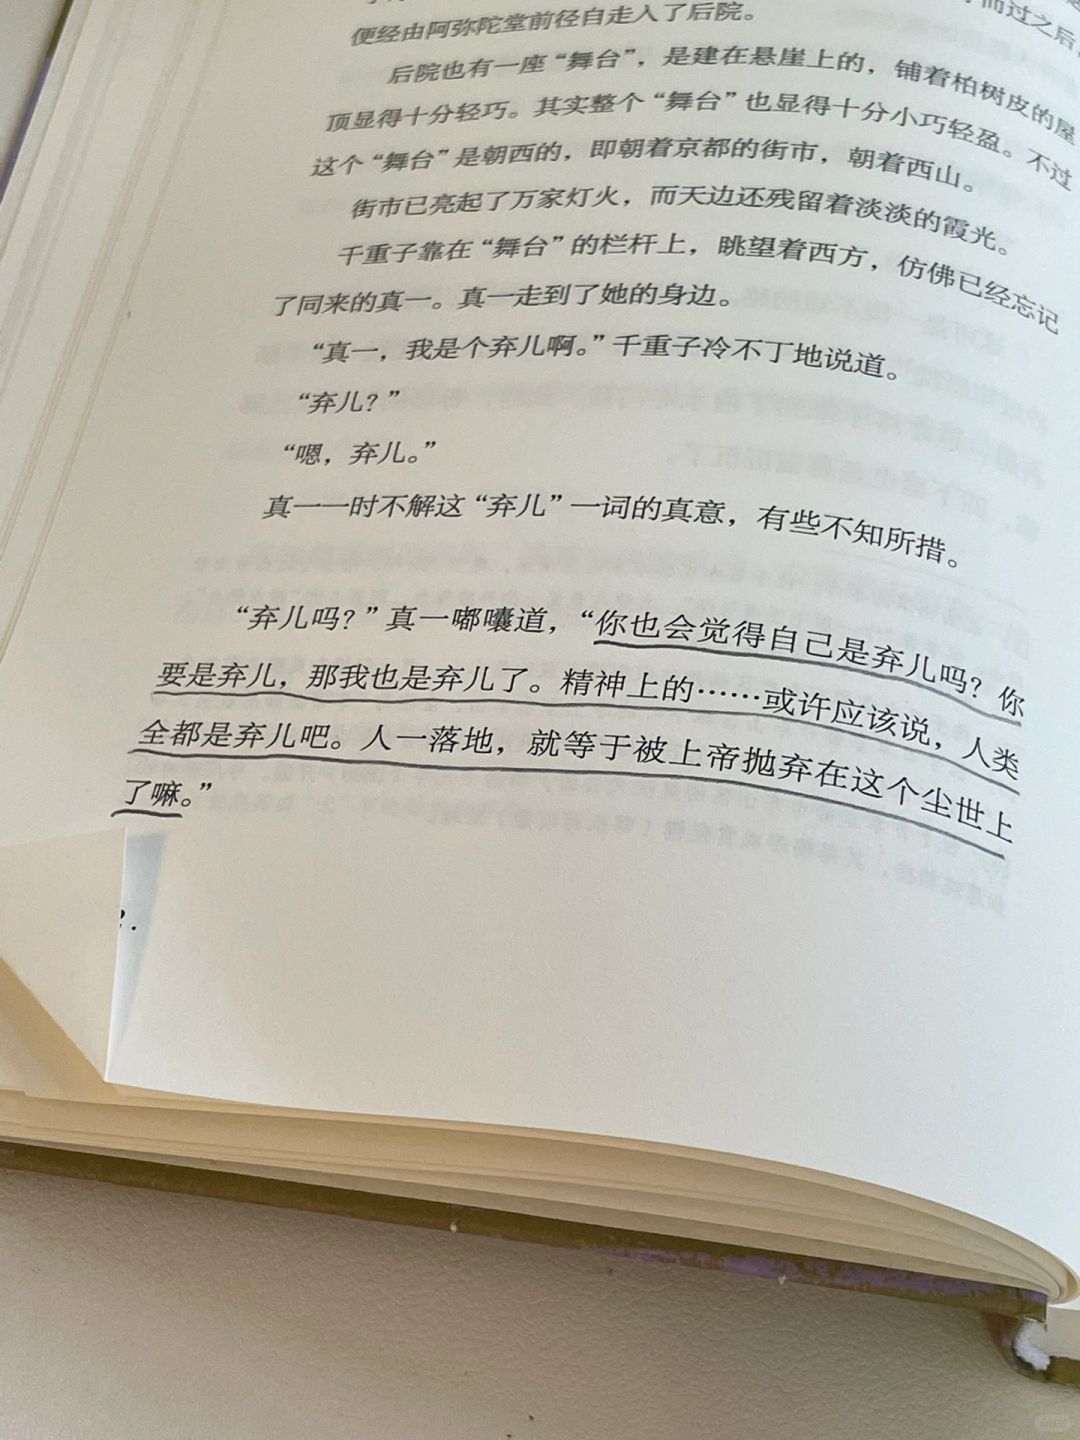 而过之后，
便经由阿弥陀堂前径自走入了后院。
后院也有一座“舞台”，是建在悬崖上的，铺着柏树皮的屋
顶显得十分轻巧。其实整个“舞台”也显得十分小巧轻盈。不过
这个“舞台”是朝西的，即朝着京都的街市，朝着西山。
街市已亮起了万家灯火，而天边还残留着淡淡的霞光。
千重子靠在“舞台”的栏杆上，眺望着西方，仿佛已经忘记
了同来的真一。真一走到了她的身边。
“真一，我是个弃儿啊。”千重子冷不丁地说道。
“弃儿？”
“嗯，弃儿。”
真一一时不解这“弃儿”一词的真意，有些不知所措。
“弃儿吗？”真一嘟囔道，“你也会觉得自己是弃儿吗？你
要是弃儿，那我也是弃儿了。精神上的……或许应该说，人类
全都是弃儿吧。人一落地，就等于被上帝抛弃在这个尘世上
了嘛。”